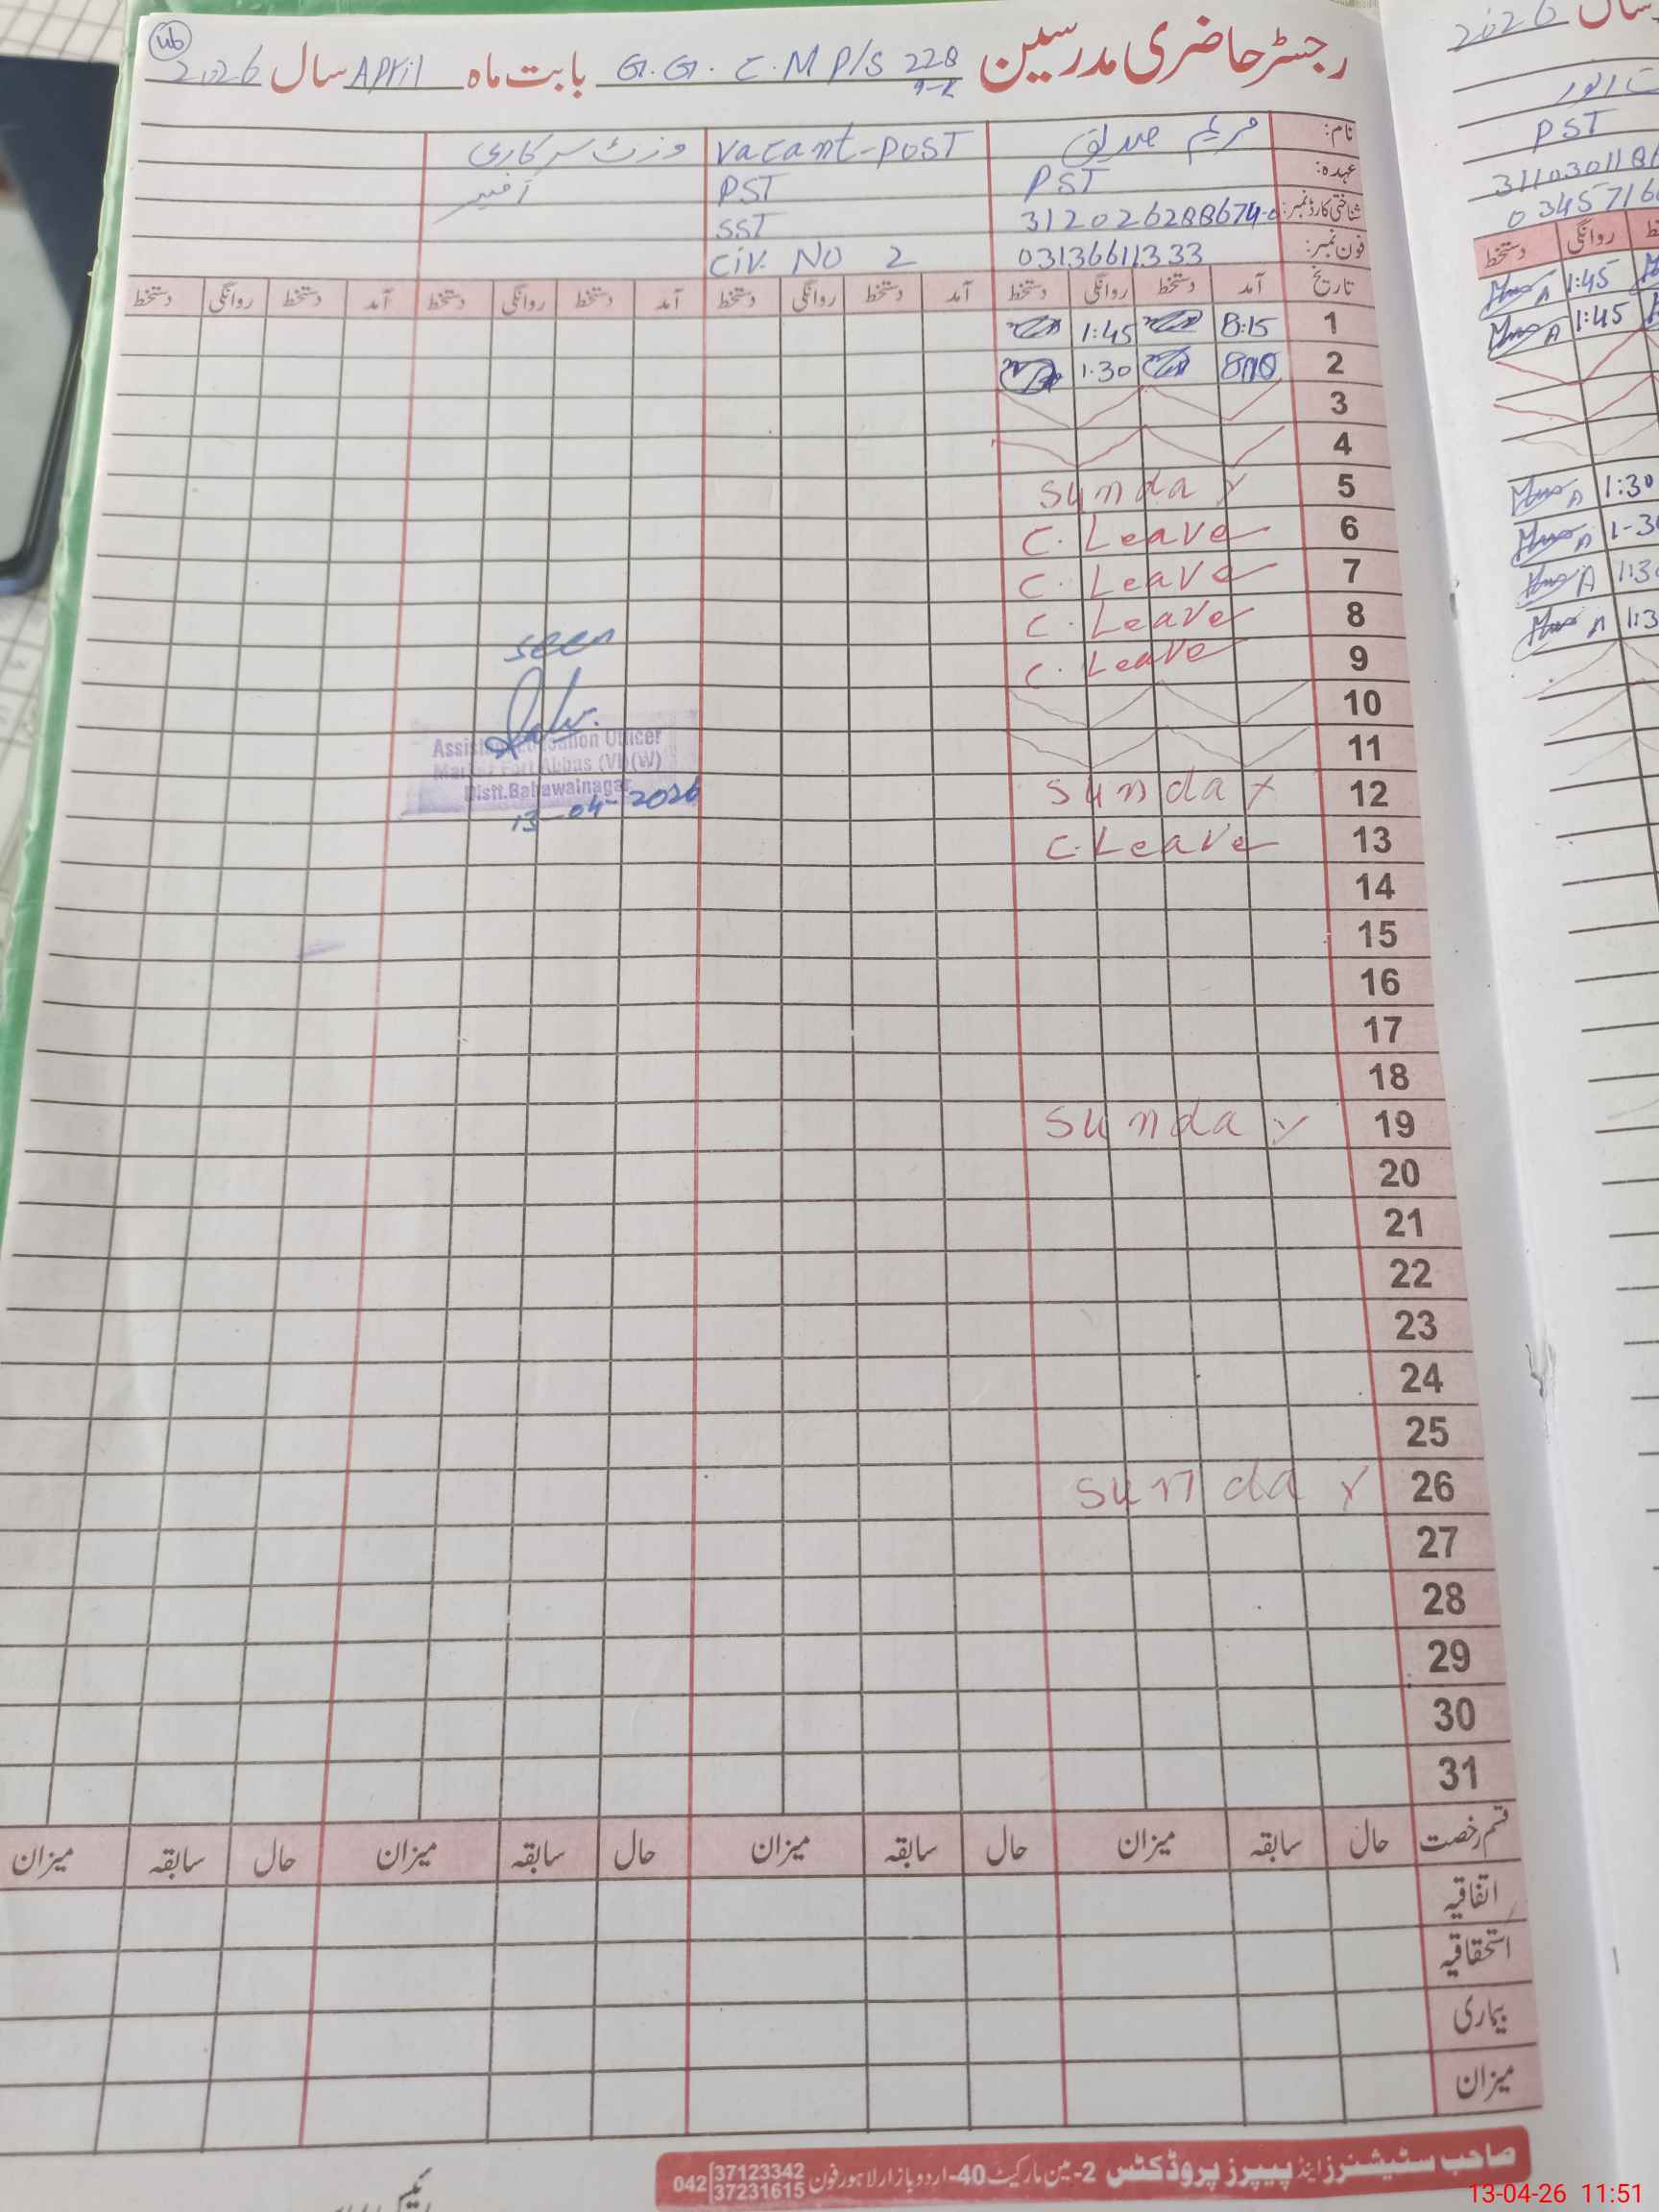 رجسٹر حاضری مدرسین G.G. C.M P/S 228 بابت ماہ April سال 2026
9-R
46
نام: مریم صدیق Vacant-Post وزٹ سرکاری
عہدہ: PST PST آفیسر
شناختی کارڈ نمبر: 312026288674-0 SST
فون نمبر: 03136611333 Civ. No 2
تاریخ آمد دستخط روانگی دستخط آمد دستخط روانگی دستخط آمد دستخط روانگی دستخط آمد دستخط روانگی دستخط
1 8:15 1:45
2 1:30
3
4
5 Sunday
6 C. Leave
7 C. Leave
8 C. Leave
9 C. Leave
10
11
12 Sunday
13 C. Leave
14
15
16
17
18
19 Sunday
20
21
22
23
24
25
26 Sunday
27
28
29
30
31
seen
Assistant Education Officer
Markaz Fort Abbas (VI) (W)
Distt. Bahawalnagar
13-04-2026
قسم رخصت حال سابقہ میزان حال سابقہ میزان حال سابقہ میزان حال سابقہ میزان
اتفاقیہ
استحقاقیہ
بیماری
میزان
صاحب سٹیشنرز اینڈ پیپرز پروڈکٹس 2-مین مارکیٹ 40-اردو بازار لاہور فون 042 37123342
37231615
سال 2026
PST
دستخط روانگی
1:45
1:45
1:30
1-30
1:30
1:30
13-04-26 11:51